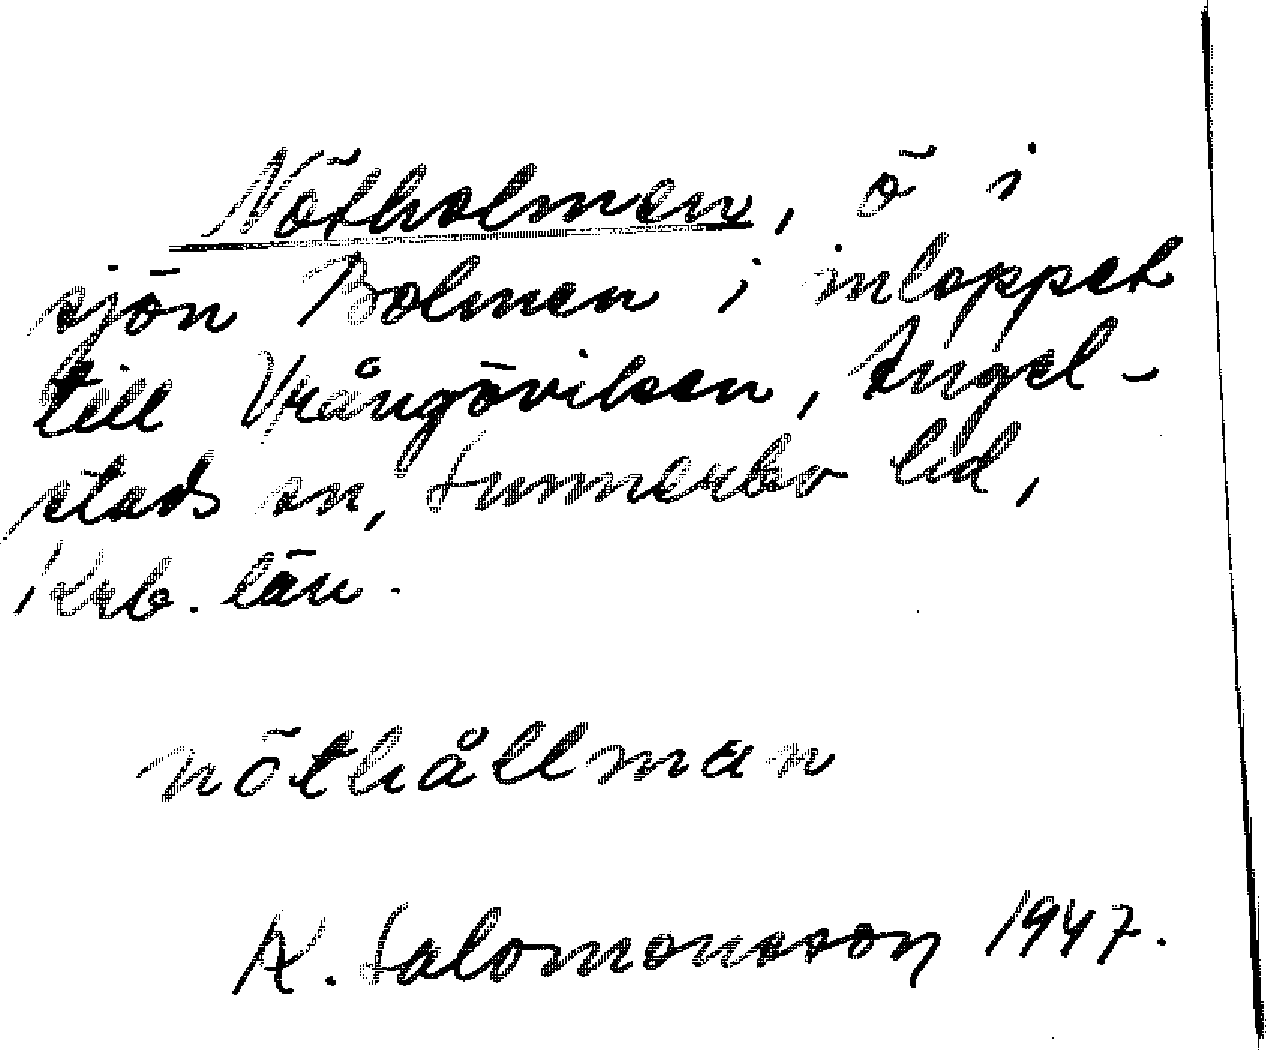 Nötholmen, ö i
sjön Bolmen i inloppet
till Vrångöviken, Angel-
stads sn, Sunnerbo hd,
Krb. län.
nöthållman
K. Salomonsson 1947.